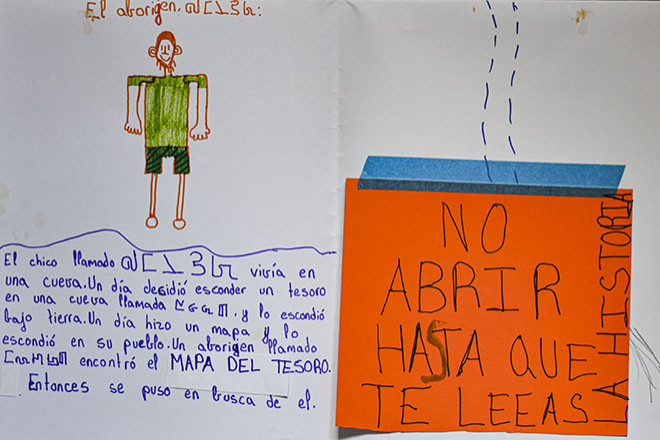 El aborigen,
El chico llamado vivía en
una cueva. Un día decidió esconder un tesoro
en una cueva llamada , y lo escondió
bajo tierra. Un día hizo un mapa y lo
escondió en su pueblo. Un aborigen llamado
encontró el MAPA DEL TESORO.
Entonces se puso en busca de el.
NO
ABRIR
HASTA QUE
TE LEEAS
LA HISTORIA